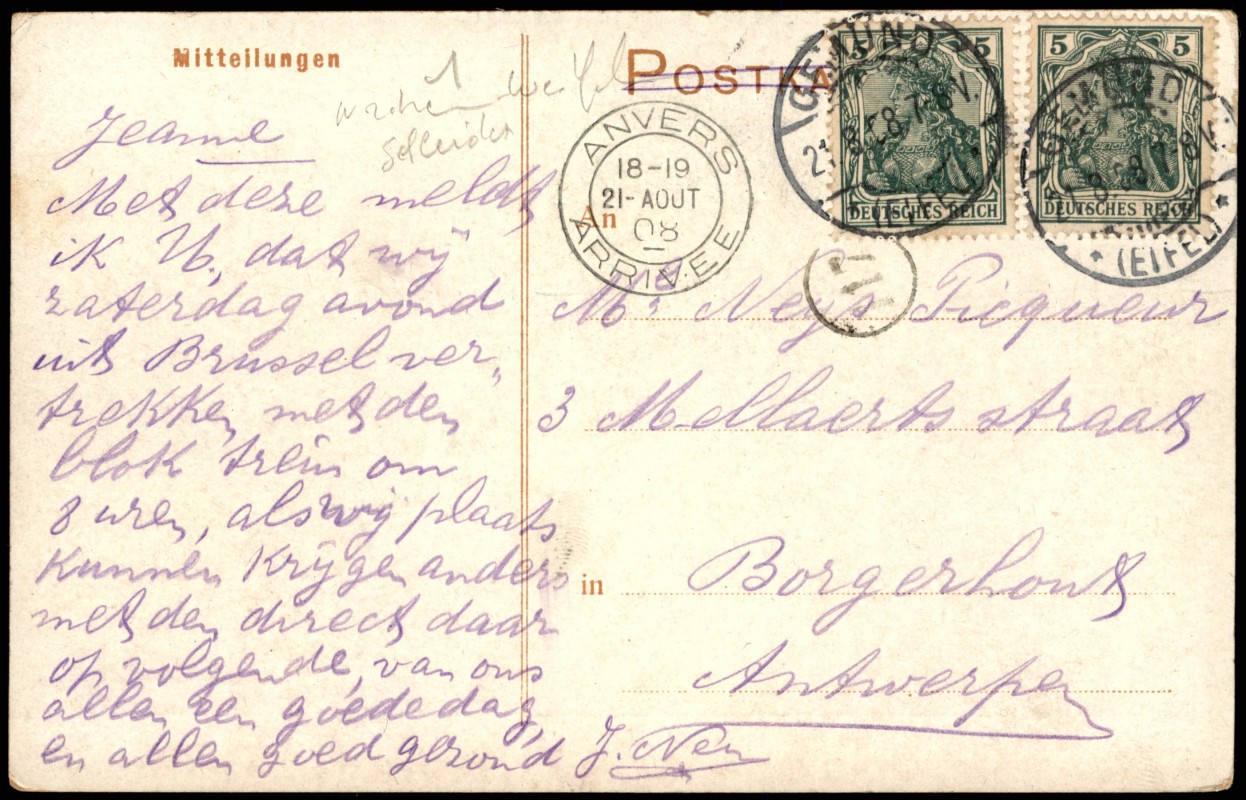 Mitteilungen
POSTKA
Jeanne
Met deze meldt
ik U, dat wij
zaterdag avond
uit Brussel ver„
trekken met den
blok trein om
8 uren, als wij plaats
kunnen krijgen anders
met den direct daar
op volgende, van ons
allen een goede dag,
en allen goed gezond J. Neys
ANVERS
18-19
21-AOUT
08
ARRIVEE
5 5
DEUTSCHES REICH
5 5
DEUTSCHES REICH
GEMÜND
21.8.08.7-8V.
(EIFEL)
GEMÜND
21.8.08.7-8V.
* (EIFEL) *
17
An
Mr Neys Picqueur
3 Mellaerts straat
in Borgerhout
Antwerpen